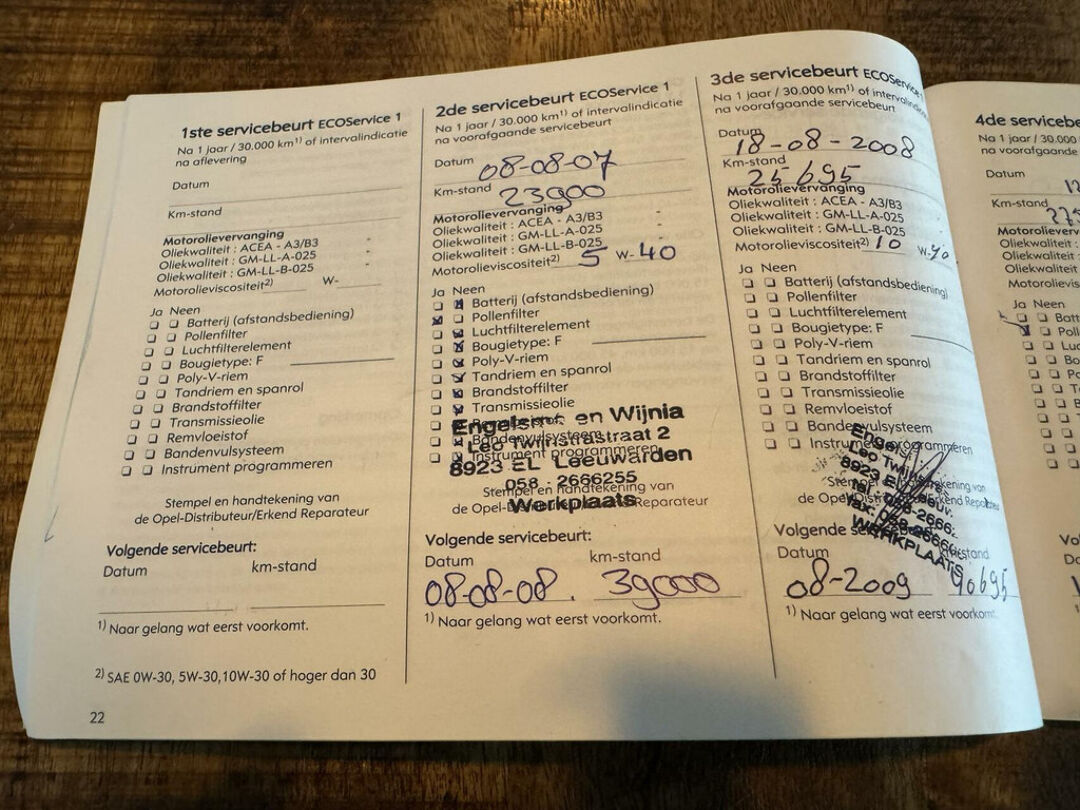 1ste servicebeurt ECOService 1
Na 1 jaar / 30.000 km¹⁾ of intervalindicatie
na aflevering
Datum
Km-stand
Motorolievervanging
Oliekwaliteit : ACEA - A3/B3
Oliekwaliteit : GM-LL-A-025
Oliekwaliteit : GM-LL-B-025
Motorolieviscositeit²⁾ W-
Ja Neen
Batterij (afstandsbediening)
Pollenfilter
Luchtfilterelement
Bougietype: F
Poly-V-riem
Tandriem en spanrol
Brandstoffilter
Transmissieolie
Remvloeistof
Bandenvulsysteem
Instrument programmeren
Stempel en handtekening van
de Opel-Distributeur/Erkend Reparateur
Volgende servicebeurt:
Datum km-stand
¹⁾ Naar gelang wat eerst voorkomt.
²⁾ SAE 0W-30, 5W-30,10W-30 of hoger dan 30
22
2de servicebeurt ECOService 1
Na 1 jaar / 30.000 km¹⁾ of intervalindicatie
na voorafgaande servicebeurt
Datum 08-08-07
Km-stand 23900
Motorolievervanging
Oliekwaliteit : ACEA - A3/B3
Oliekwaliteit : GM-LL-A-025
Oliekwaliteit : GM-LL-B-025
Motorolieviscositeit²⁾ 5 W-40
Ja Neen
Batterij (afstandsbediening)
Pollenfilter
Luchtfilterelement
Bougietype: F
Poly-V-riem
Tandriem en spanrol
Brandstoffilter
Transmissieolie
Bandenvulsysteem
Instrument programmeren
Engelsma en Wijnia
Leo Twijnstrastraat 2
8923 EL Leeuwarden
058 - 2666255
Werkplaats
Stempel en handtekening van
de Opel-Distributeur/Erkend Reparateur
Volgende servicebeurt:
Datum km-stand
08-08-08. 39000
¹⁾ Naar gelang wat eerst voorkomt.
3de servicebeurt ECOService
Na 1 jaar / 30.000 km¹⁾ of intervalindicatie
na voorafgaande servicebeurt
Datum
18-08-2008
Km-stand
25695
Motorolievervanging
Oliekwaliteit : ACEA - A3/B3
Oliekwaliteit : GM-LL-A-025
Oliekwaliteit : GM-LL-B-025
Motorolieviscositeit²⁾ 10 W-40
Ja Neen
Batterij (afstandsbediening)
Pollenfilter
Luchtfilterelement
Bougietype: F
Poly-V-riem
Tandriem en spanrol
Brandstoffilter
Transmissieolie
Remvloeistof
Bandenvulsysteem
Instrument programmeren
8923 E
WERKPLAATS
Stempel en handtekening van
de Opel-Distributeur/Erkend Reparateur
Volgende servicebeurt
Datum km-stand
08-2009 40695
¹⁾ Naar gelang wat eerst voorkomt.
4de
Na 1 jaar / 30.000
na voorafgaande
Datum
Km-stand
Oliekwaliteit :
Oliekwaliteit
Oliekwaliteit
Ja Neen